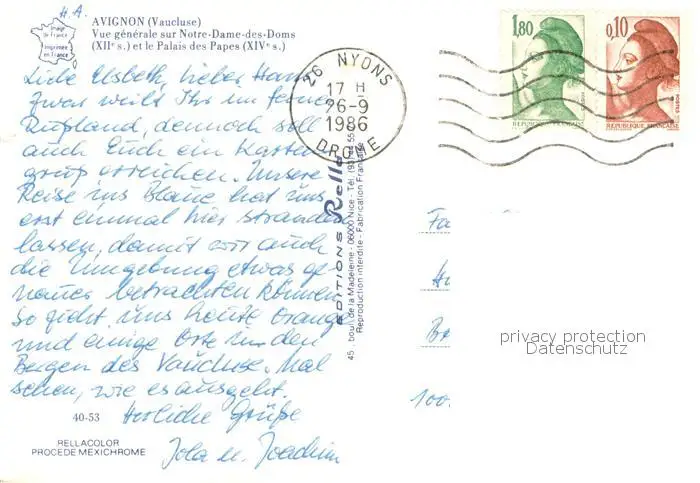 H. A.
Image de France
Imprimée en France
AVIGNON (Vaucluse)
Vue générale sur Notre-Dame-des-Doms
(XIIe s.) et le Palais des Papes (XIVe s.)
Liebe Elsbeth, lieber Hans
Zwar weilt Ihr im fernen
Rußland, dennoch soll
auch Euch ein Karten
gruß erreichen. Unsere
Reise ins Blaue hat uns
erst einmal hier stranden
lassen, damit wir auch
die Umgebung etwas ge-
nauer betrachten können.
So zieht uns heute Orange
und einige Orte in den
Bergen des Vaucluse. Mal
sehen, wie es ausgeht.
Herzliche Grüße
Jola u. Joachim
40-53
RELLACOLOR
PROCEDE MEXICHROME
26 NYONS
17 H
26-9
1986
DROME
EDITIONS Rella
45, boul. de la Madeleine - 06000 Nice - Tél. (93)
Reproduction interdite - Fabrication Française
1,80
REPUBLIQUE FRANÇAISE
0,10
POSTES
REPUBLIQUE FRANÇAISE
Fa
Be
100.
privacy protection
Datenschutz